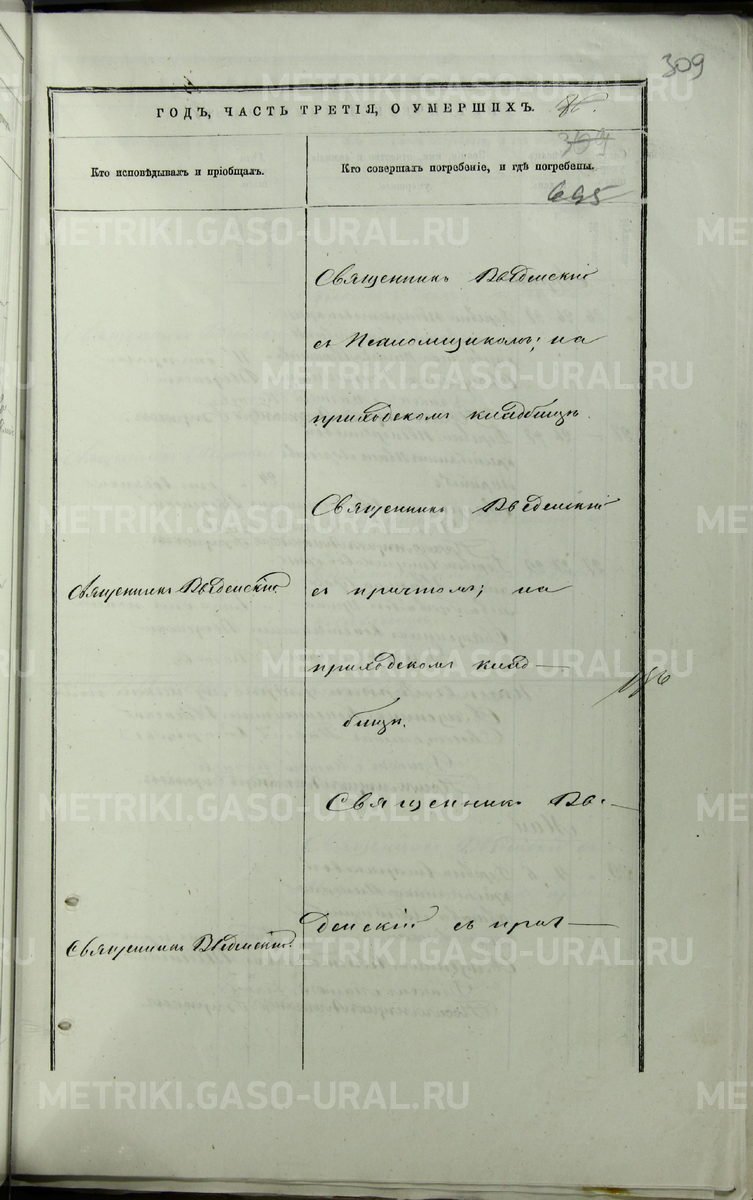 309
ГОДЪ, ЧАСТЬ ТРЕТІЯ, О УМЕРШИХЪ.
Кто исповѣдывалъ и пріобщалъ.
Кто совершалъ погребеніе, и гдѣ погребены.
695
Священникъ Введенскій
съ Псаломщикомъ; на
приходскомъ кладбищѣ.
Священникъ Введенскій
Священникъ Введенскій
съ причтомъ; на
приходскомъ клад-
бищѣ.
Священникъ Вве-
Священникъ Введенскій.
денскій съ прич-
METRIKI.GASO-URAL.RU